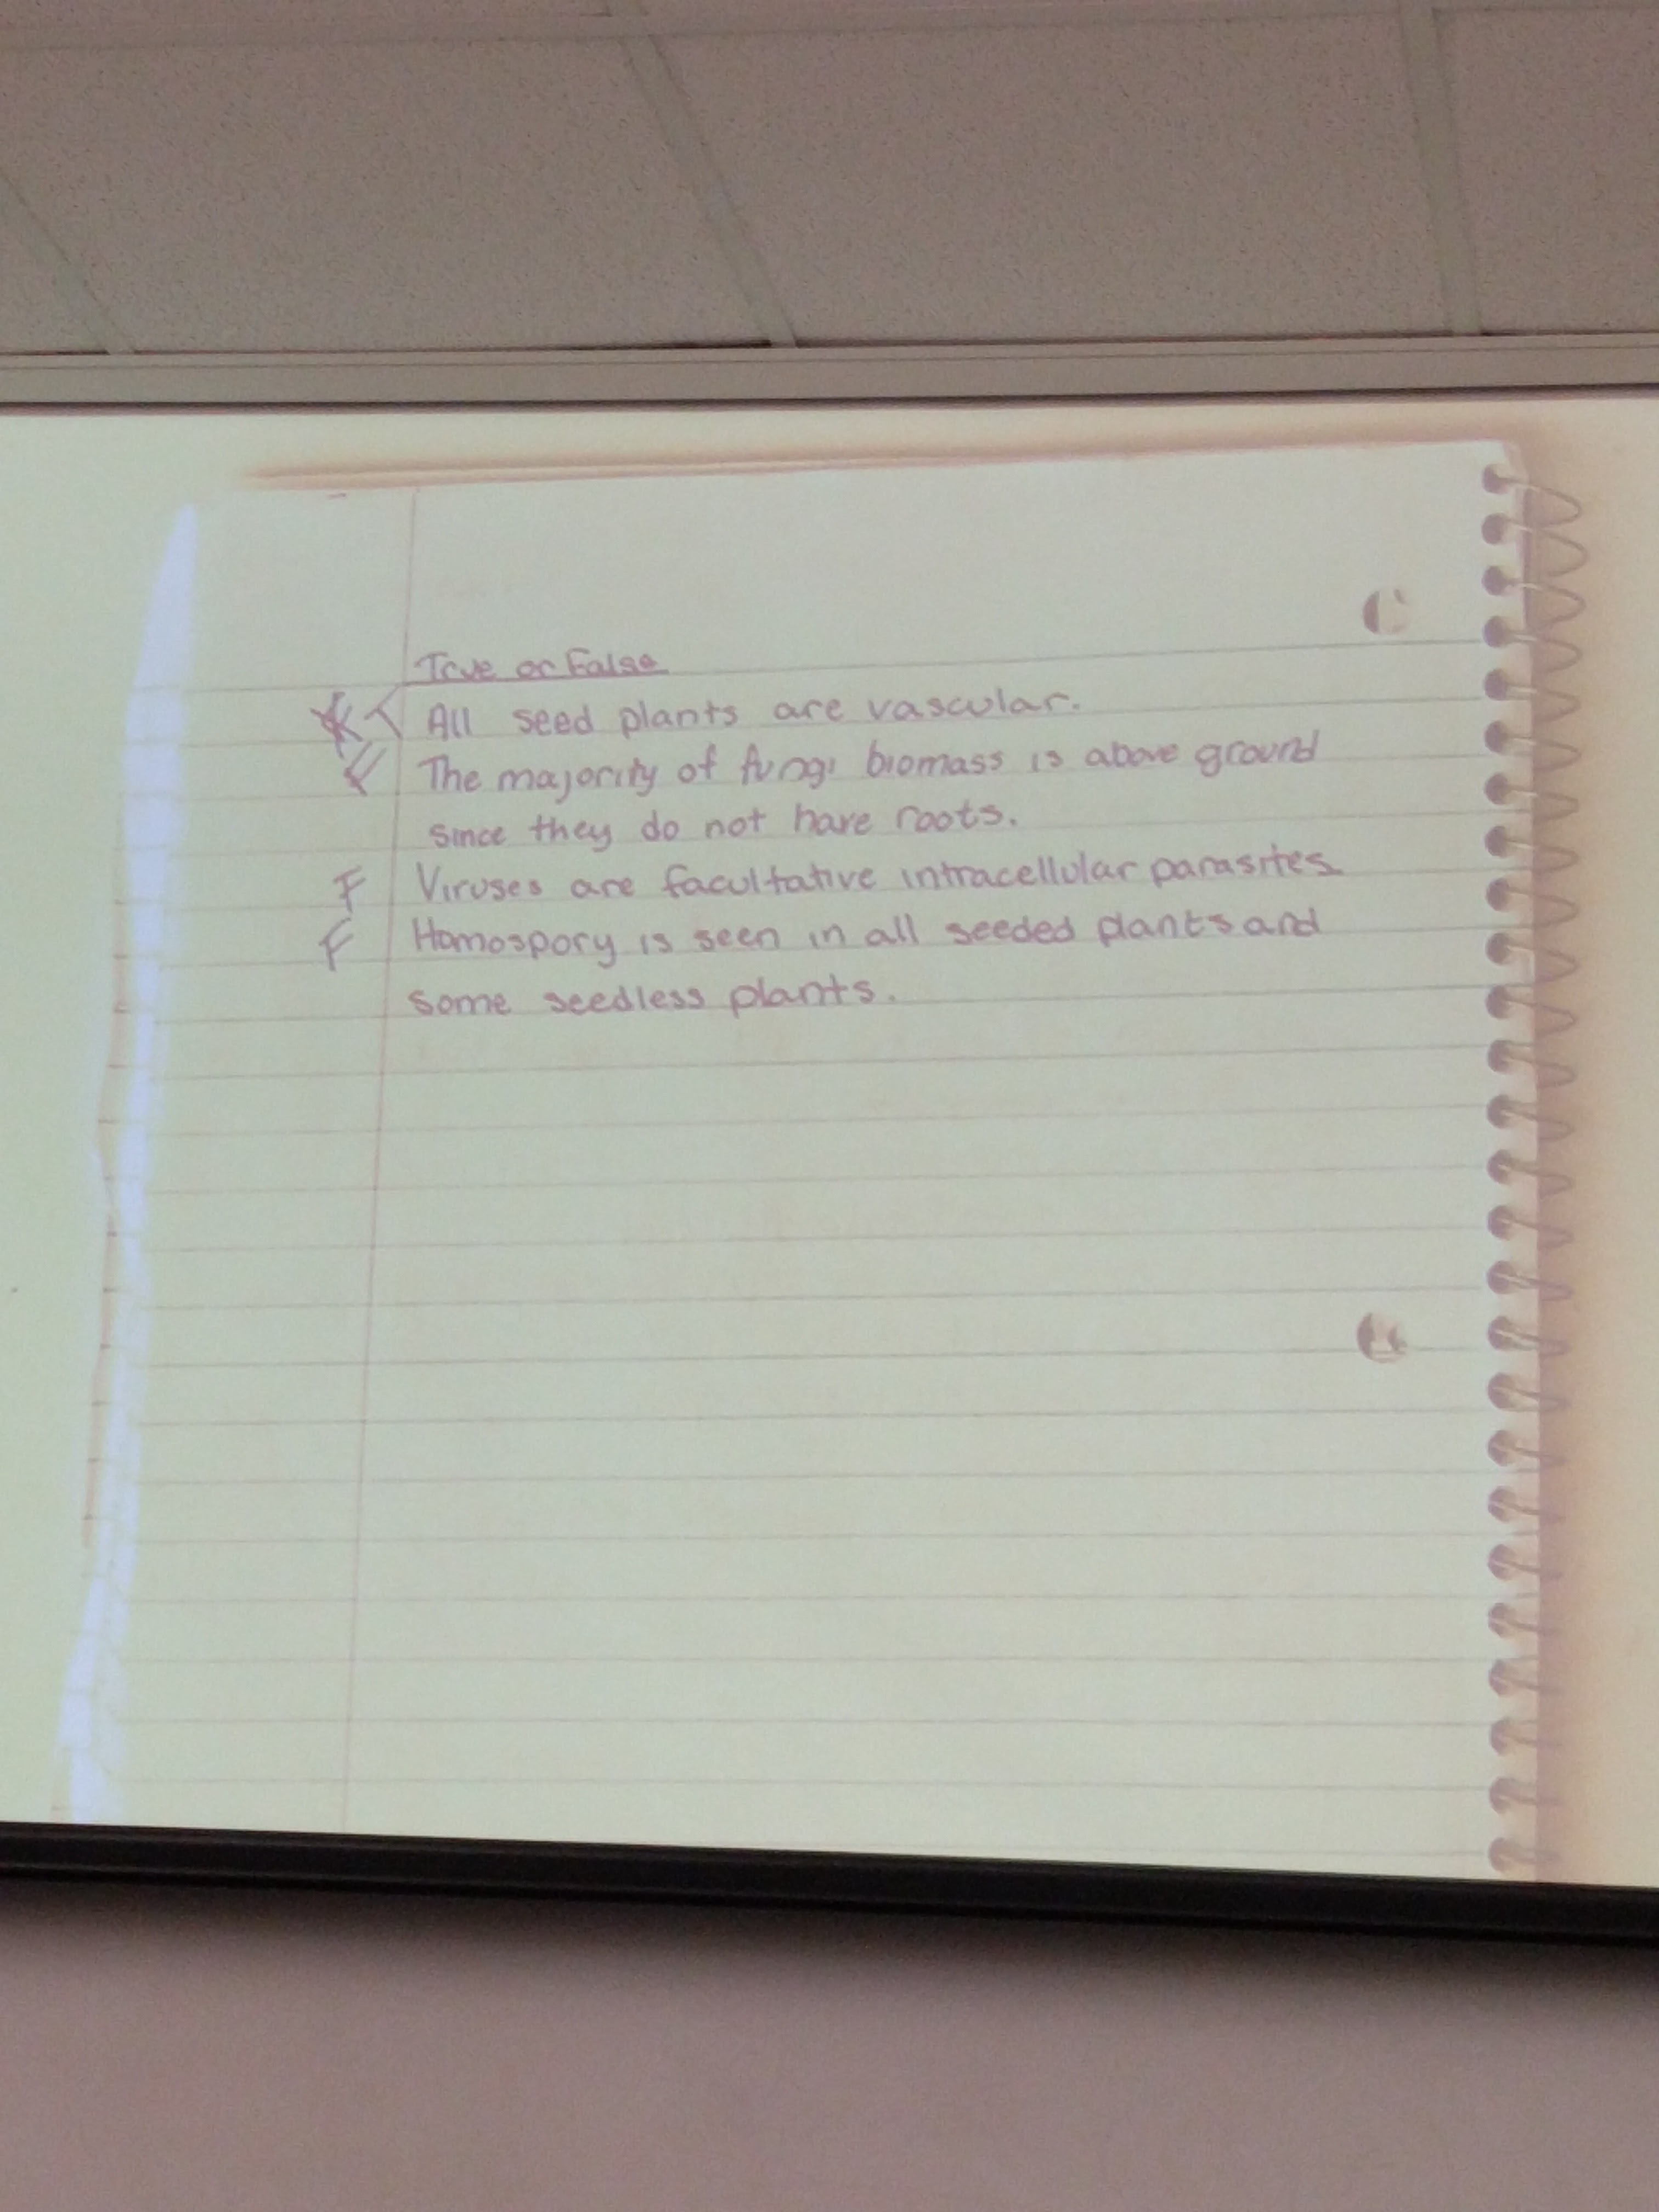 True or False
T All seed plants are vascular.
F The majority of fungi biomass is above ground
since they do not have roots.
F Viruses are facultative intracellular parasites.
F Homospory is seen in all seeded plants and
some seedless plants.